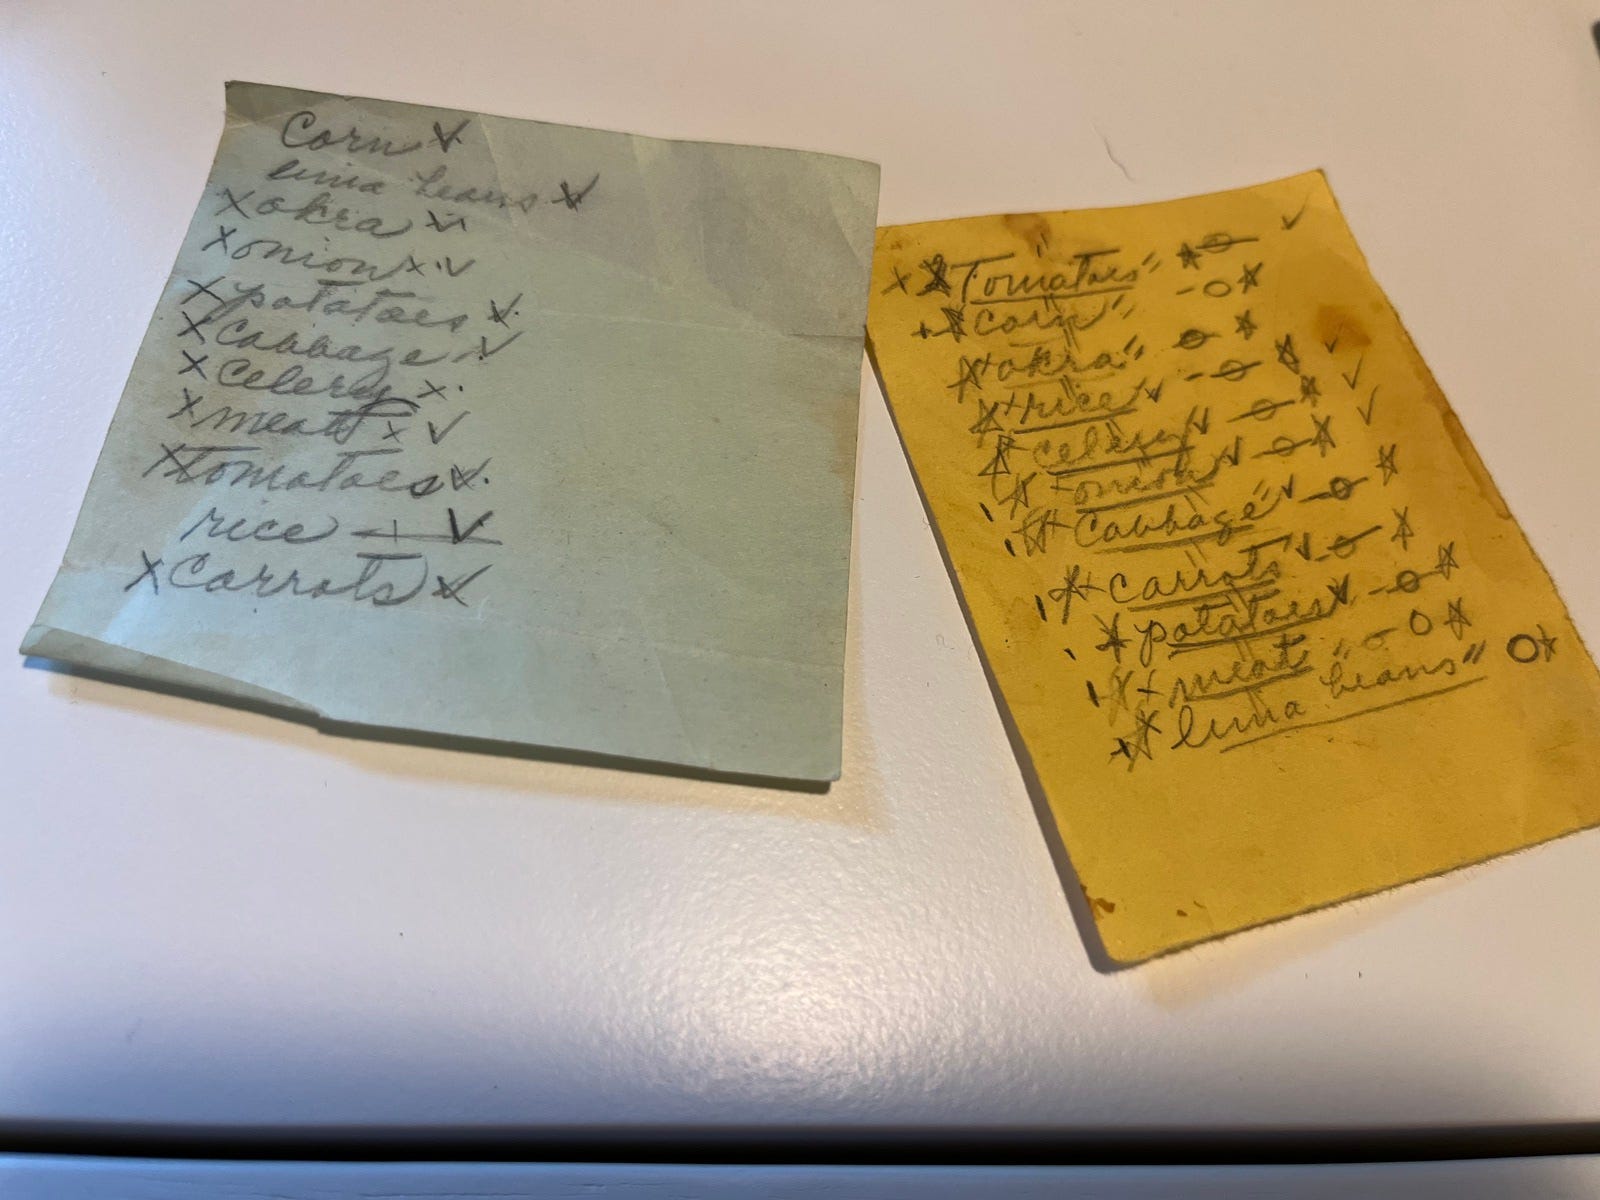 Corn
lima beans
okra
onion
potatoes
Cabbage
Celery
meat
Tomatoes
rice
Carrots
Tomatoes
corn
okra
rice
celery
onion
Cabbage
carrots
potatoes
meat
lima beans